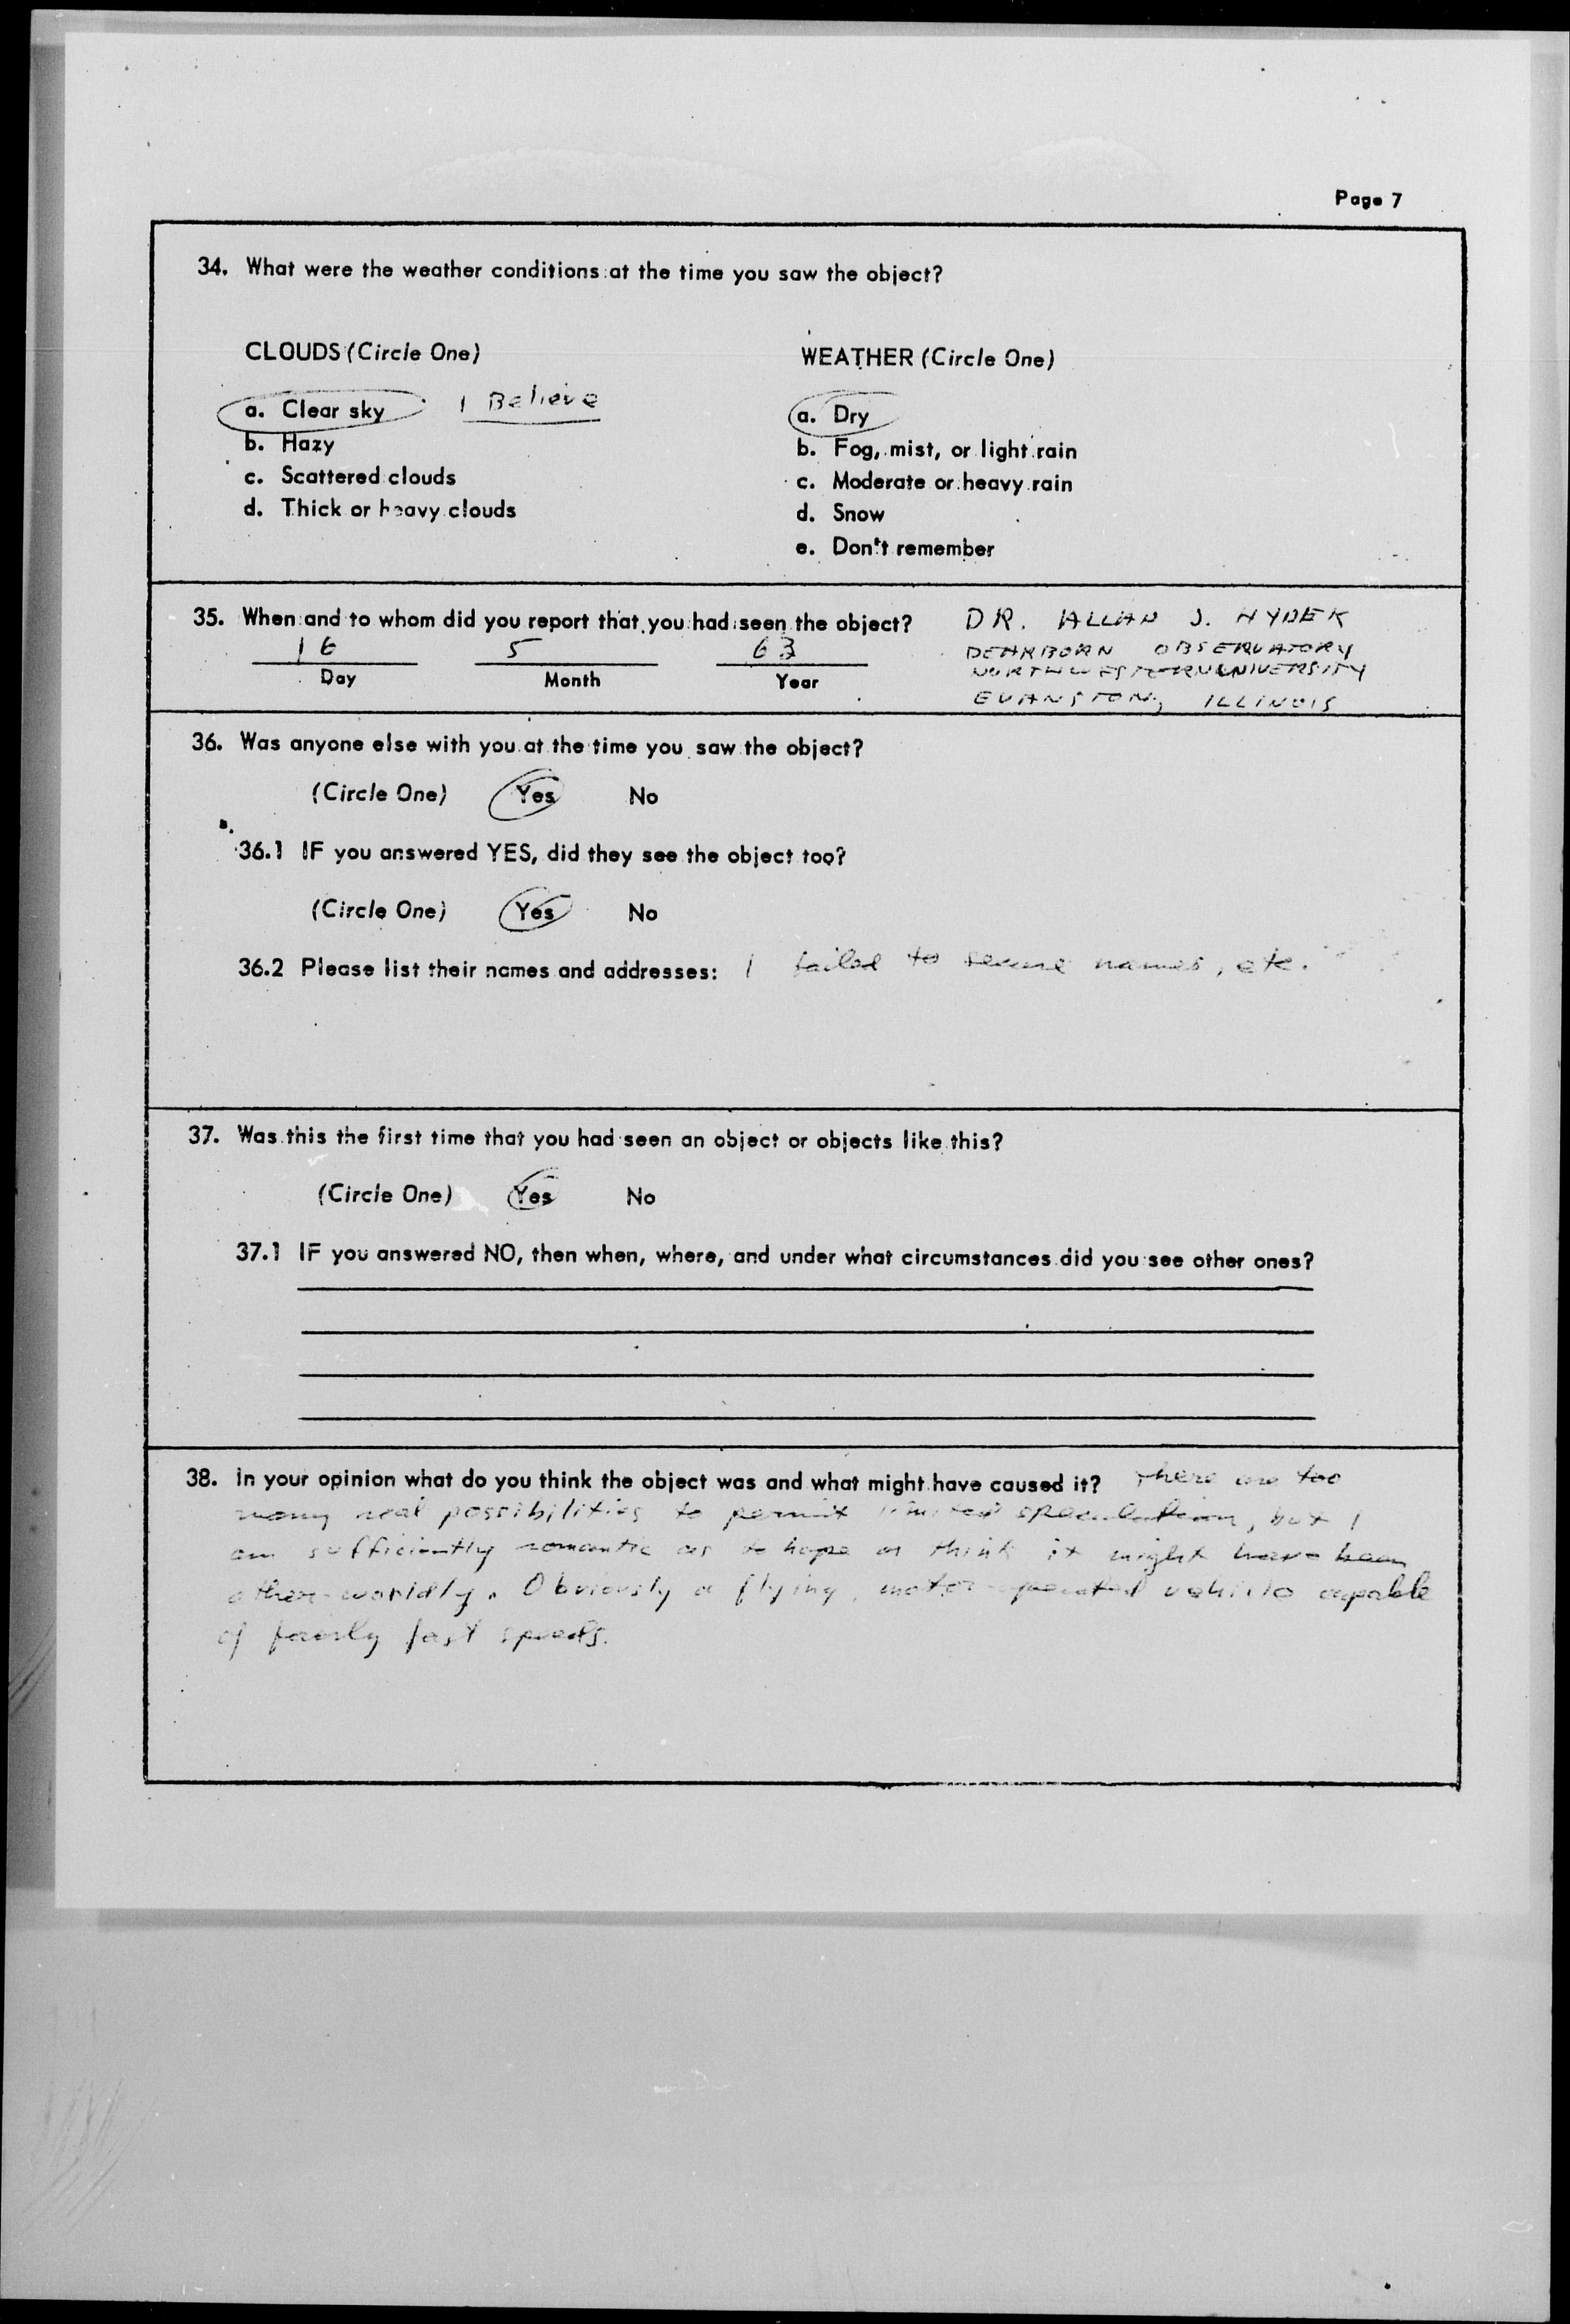 Page 7
34. What were the weather conditions at the time you saw the object?
CLOUDS (Circle One)
a. Clear sky I Believe
b. Hazy
c. Scattered clouds
d. Thick or heavy clouds
WEATHER (Circle One)
a. Dry
b. Fog, mist, or light rain
c. Moderate or heavy rain
d. Snow
e. Don't remember
35. When and to whom did you report that you had seen the object? DR. ALLAN J. HYDEK
DEARBORN OBSERVATORY
NORTHWESTERN UNIVERSITY
EVANSTON, ILLINOIS
16 5 63
Day Month Year
36. Was anyone else with you at the time you saw the object?
(Circle One) Yes No
36.1 IF you answered YES, did they see the object too?
(Circle One) Yes No
36.2 Please list their names and addresses: I failed to secure names, etc.
37. Was this the first time that you had seen an object or objects like this?
(Circle One) Yes No
37.1 IF you answered NO, then when, where, and under what circumstances did you see other ones?
38. In your opinion what do you think the object was and what might have caused it? There are too
many real possibilities to permit limited speculation, but I
am sufficiently romantic as to hope or think it might have been
other-worldly. Obviously a flying, motor-operated vehicle capable
of fairly fast speeds.